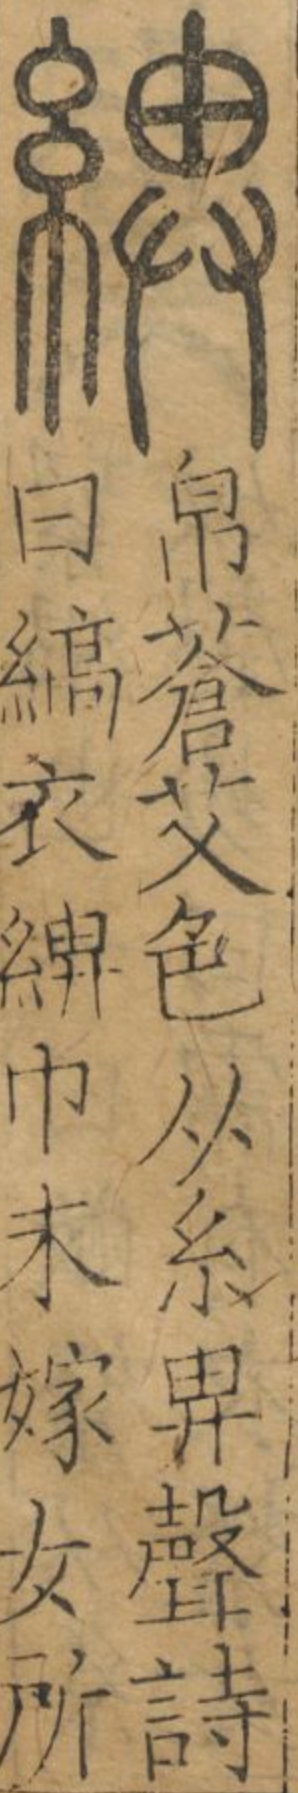 綥
帛蒼艾色从糸畁聲詩
曰縞衣綥巾未嫁女所